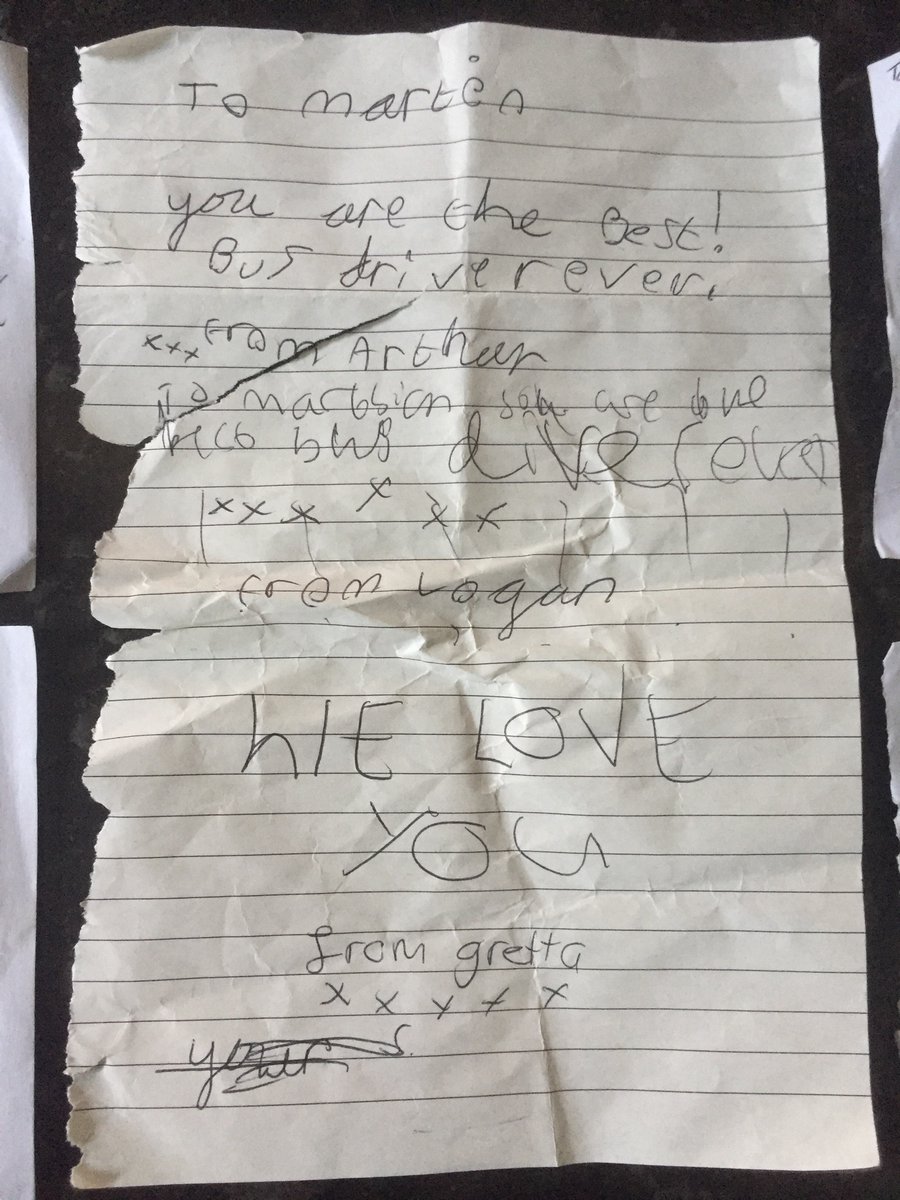 To martin
you are the Best!
Bus driver ever.
xxx From Arthur
To you are
bus driver ever
xxx x x x
from Logan
WE LOVE
YOU
from gretta
x x x x x